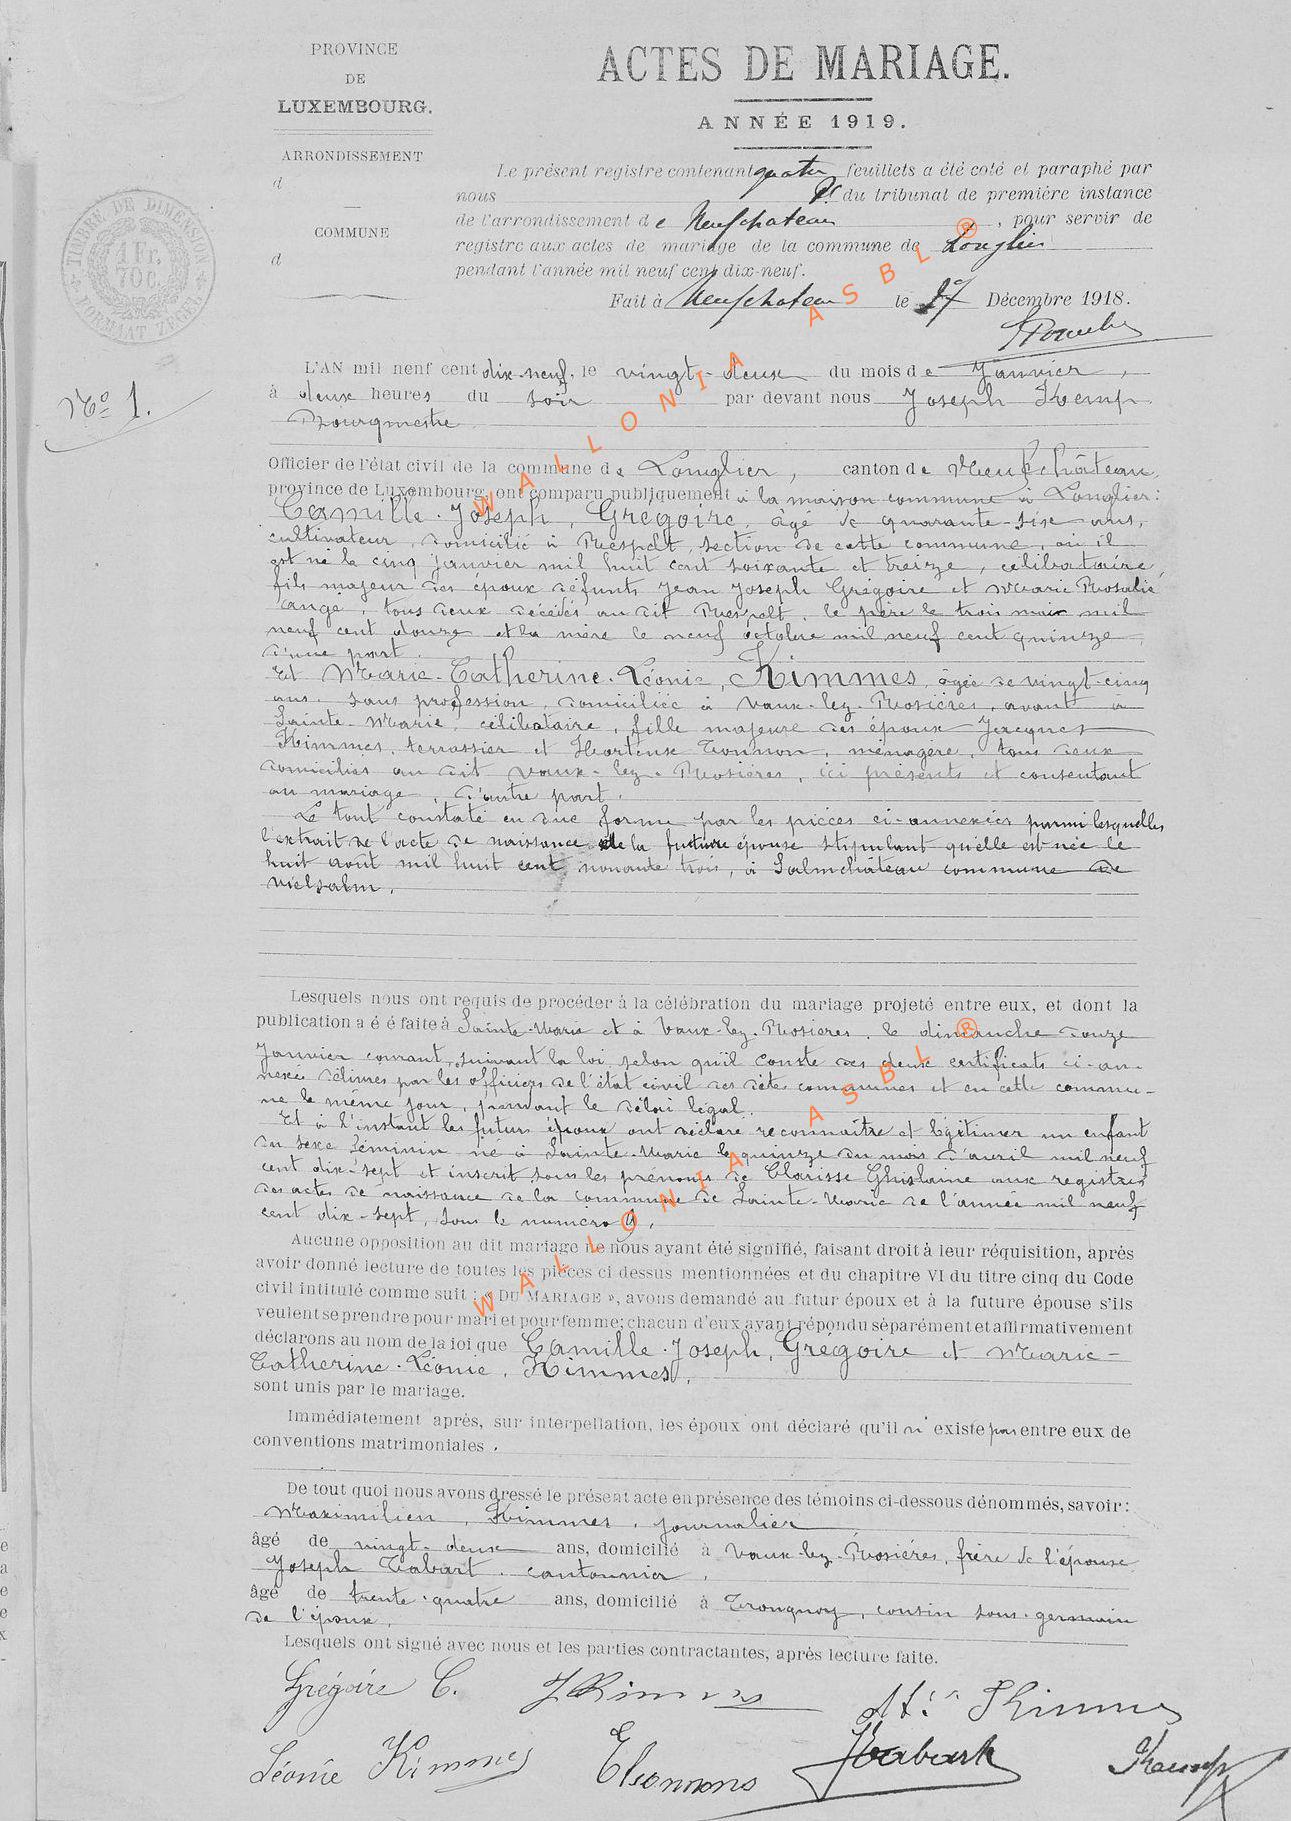 PROVINCE
DE
LUXEMBOURG.
ARRONDISSEMENT
d
COMMUNE
d
TIMBRE DE DIMENSION
1 Fr.
70 c.
FORMAAT ZEGEL
ACTES DE MARIAGE.
ANNÉE 1919.
Le présent registre contenant quatre feuillets a été coté et paraphé par
nous Pt du tribunal de première instance
de l'arrondissement de Neufchateau, pour servir de
registre aux actes de mariage de la commune de Longlier
pendant l'année mil neuf cent dix-neuf.
Fait à Neufchateau le 17 Décembre 1918.
No 1.
L'AN mil neuf cent dix-neuf, le vingt-deux du mois de Janvier,
à deux heures du soir par devant nous Joseph Kemp
Bourgmestre
Officier de l'état civil de la commune de Longlier, canton de Neufchâteau,
province de Luxembourg, ont comparu publiquement à la maison commune à Longlier:
Camille-Joseph, Grégoire, âgé de quarante-six ans,
cultivateur, domicilié à Respelt, section de cette commune, où il
est né le cinq janvier mil huit cent soixante et treize, célibataire,
fils majeur des époux défunts Jean Joseph Grégoire et Marie Rosalie
Langé, tous deux décédés au dit Respelt, le père le trois mai mil
neuf cent douze et la mère le neuf octobre mil neuf cent quinze,
d'une part.
Et Marie-Catherine-Léonie, Kimmes, âgée de vingt-cinq
ans, sans profession, domiciliée à Vaux-lez-Rosières, avant à
Sainte-Marie, célibataire, fille majeure des époux Jacques
Kimmes, terrassier et Hortense Tonnon, ménagère, tous deux
domiciliés au dit Vaux-lez-Rosières, ici présents et consentant
au mariage, d'autre part.
Le tout constaté en due forme par les pièces ci-annexées parmi lesquelles
l'extrait de l'acte de naissance de la future épouse stipulant qu'elle est née le
huit août mil huit cent nonante trois, à Salmchâteau commune de
Vielsalm.
Lesquels nous ont requis de procéder à la célébration du mariage projeté entre eux, et dont la
publication a é é faite à Sainte-Marie et à Vaux-lez-Rosières, le dimanche douze
Janvier courant, suivant la loi, selon qu'il conste des deux certificats ci-an-
nexés délivrés par les officiers de l'état civil des dites communes et en cette commu-
ne le même jour, pendant le délai légal.
Et à l'instant les futurs époux ont déclaré reconnaître et légitimer un enfant
du sexe féminin né à Sainte-Marie le quinze du mois d'avril mil neuf
cent dix-sept et inscrit sous les prénoms de Clarisse Ghislaine aux registres
des actes de naissance de la commune de Sainte-Marie de l'année mil neuf
cent dix-sept, sous le numéro 9.
Aucune opposition au dit mariage ne nous ayant été signifié, faisant droit à leur réquisition, après
avoir donné lecture de toutes les pièces ci dessus mentionnées et du chapitre VI du titre cinq du Code
civil intitulé comme suit : « DU MARIAGE », avons demandé au futur époux et à la future épouse s'ils
veulent se prendre pour mari et pour femme; chacun d'eux ayant répondu séparément et affirmativement
déclarons au nom de la loi que Camille-Joseph, Grégoire et Marie-
Catherine-Léonie, Kimmes,
sont unis par le mariage.
Immédiatement après, sur interpellation, les époux ont déclaré qu'il n'existe pas entre eux de
conventions matrimoniales.
De tout quoi nous avons dressé le présent acte en présence des témoins ci-dessous dénommés, savoir:
Maximilien, Kimmes, journalier
âgé de vingt-deux ans, domicilié à Vaux-lez-Rosières, frère de l'épouse
Joseph Tabart, cantonnier,
âgé de trente-quatre ans, domicilié à Tronquoy, cousin sous-germain
de l'époux.
Lesquels ont signé avec nous et les parties contractantes, après lecture faite.
Grégoire C. J Kimmes Mx Kimmes
Léonie Kimmes JTabart Kemp
WALLONIA ASBL ®
WALLONIA ASBL ®